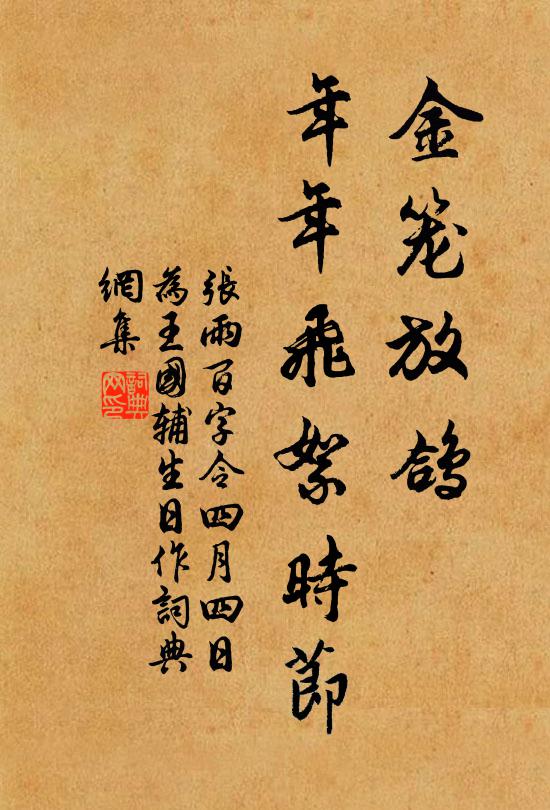 金笼放鴿
年年飛絮時節
張雨百字令四月四日
為王國輔生日作詞典
網集
詞典
网印